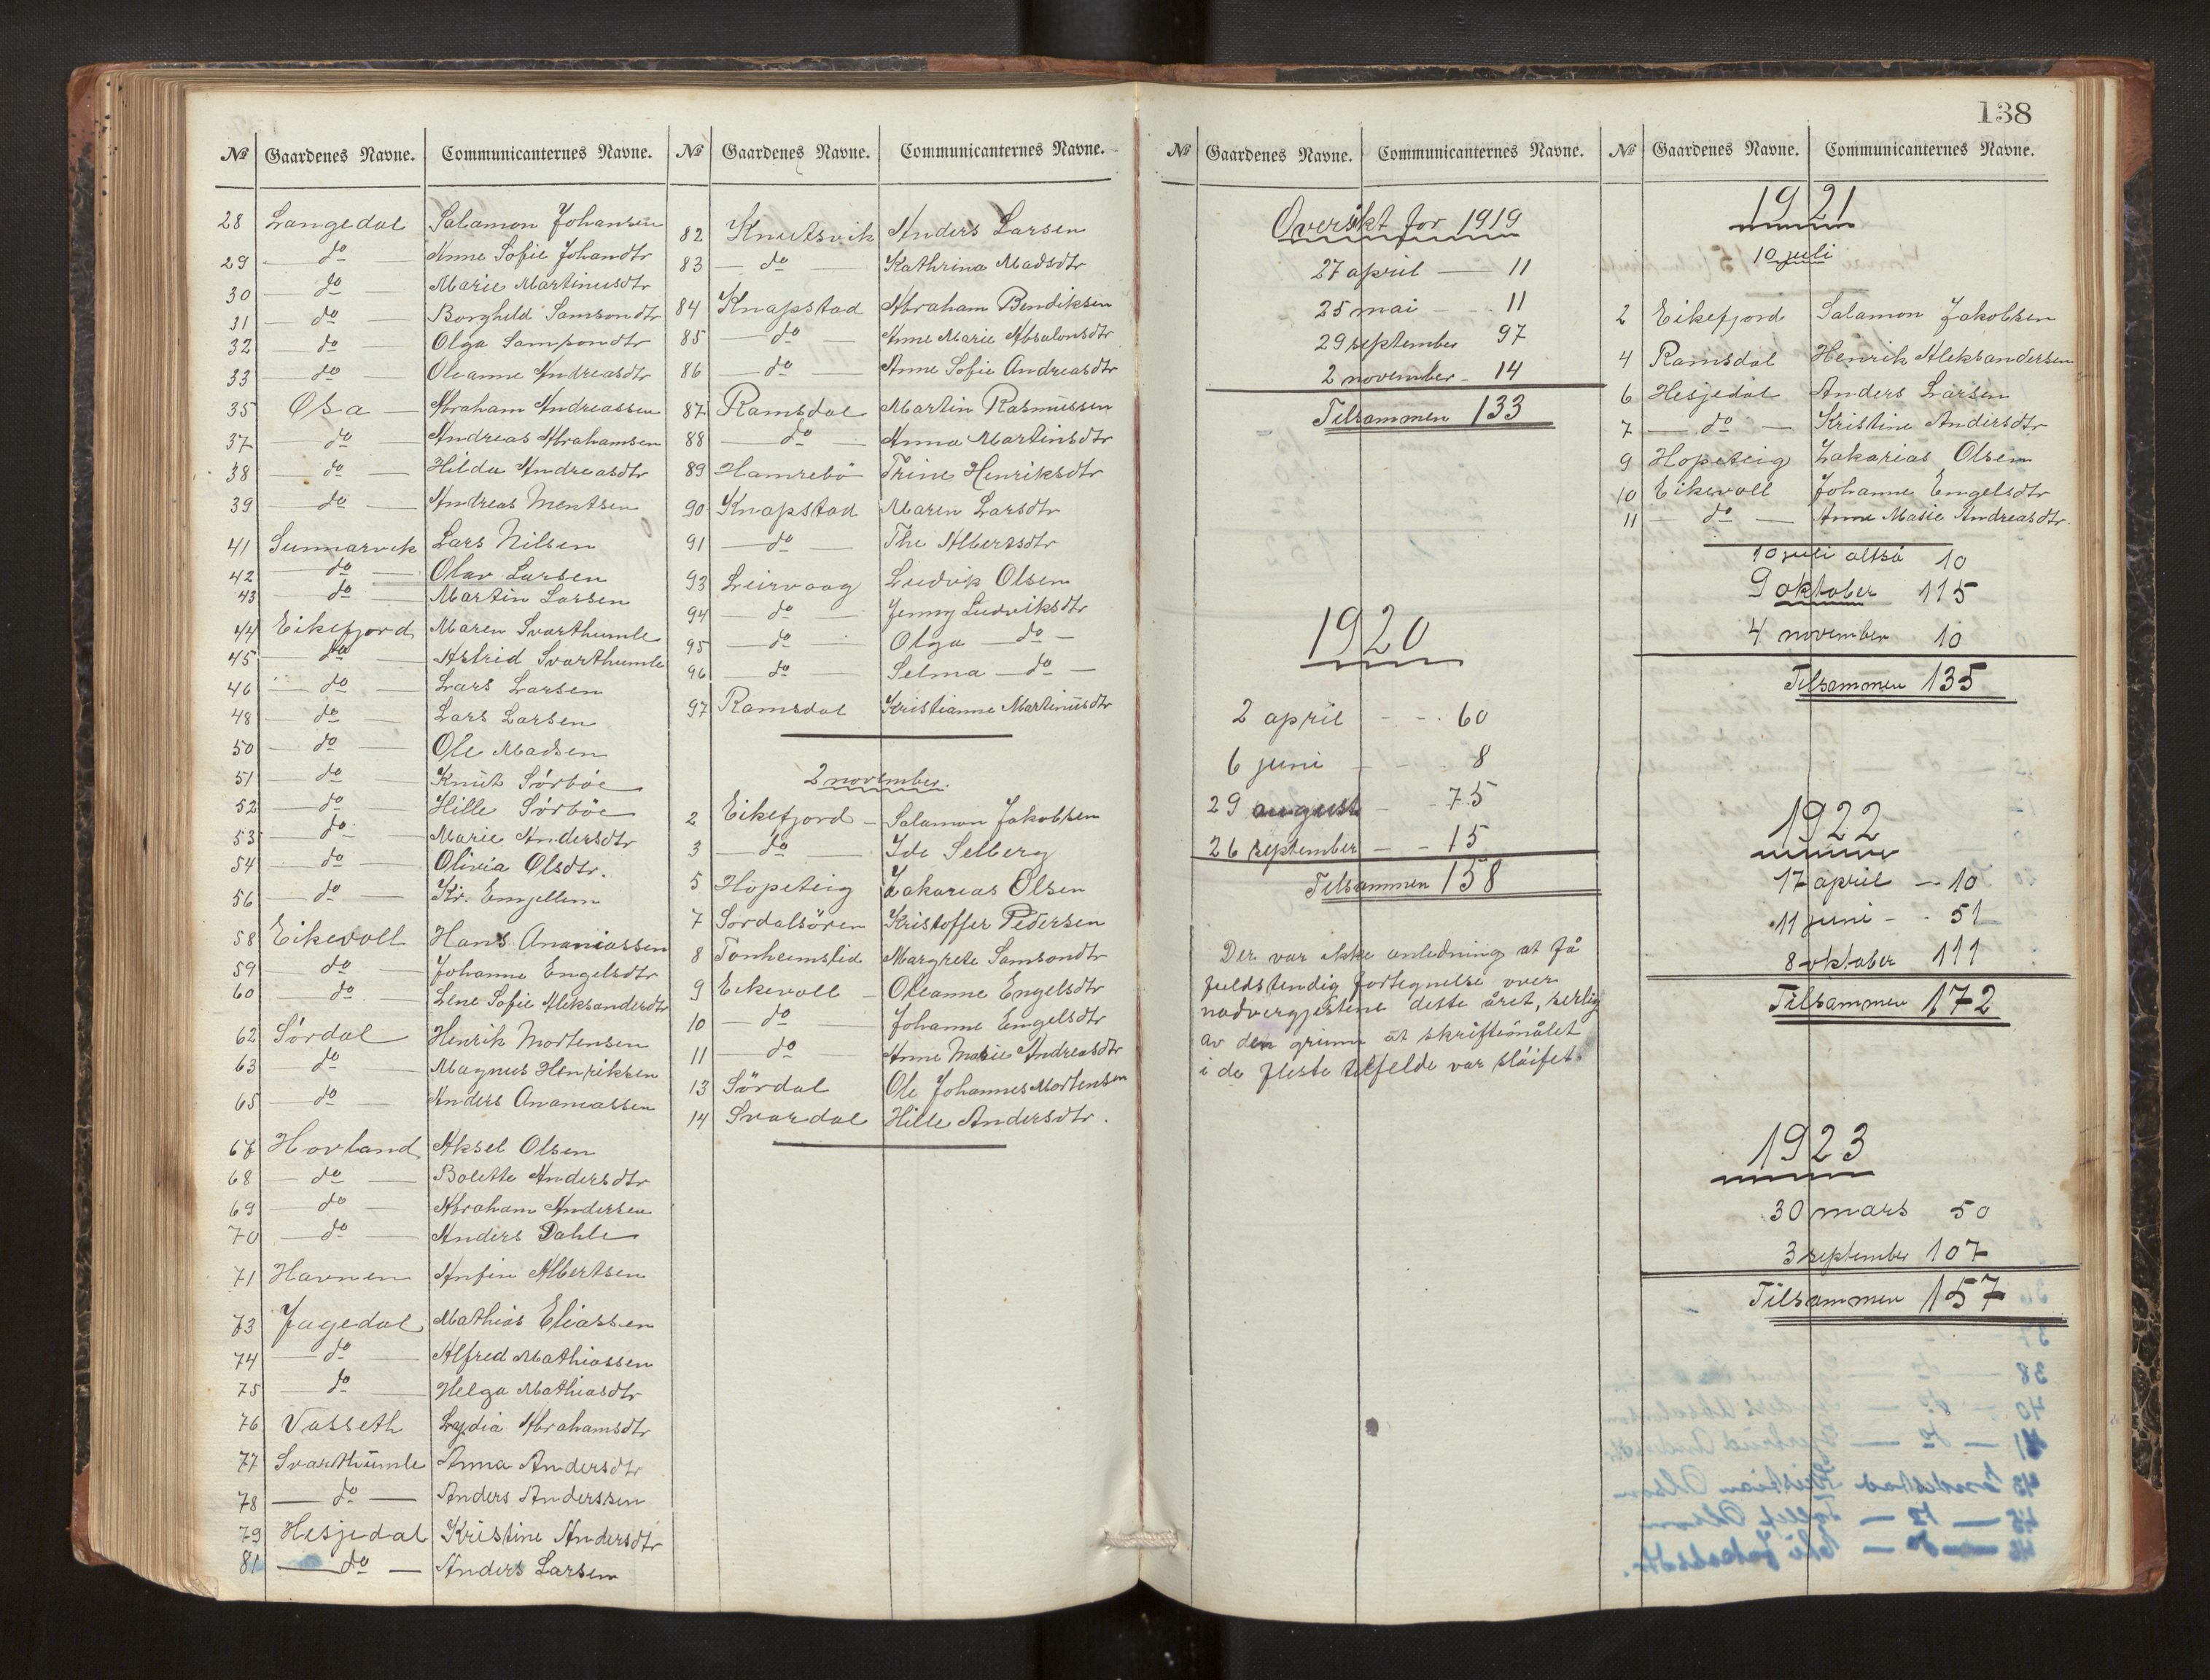 138
№ Gaardenes Navne. Communicanternes Navne.
28 Langedal Salamon Johansen
29 — do — Anne Sofie Johansdtr
30 — do — Marie Martinusdtr
31 — do — Borghild Samsondtr
32 — do — Olga Samsondtr
33 — do — Oleanne Andreasdtr
35 Osa — Abraham Andreassen
37 — do — Andreas Abrahamsen
38 — do — Hilda Andreasdtr
39 — do — Andreas Mentsen
41 Sunnarvik Lars Nilsen
42 — do — Olav Larsen
43 — do — Martin Larsen
44 Eikefjord Maren Svarthumle
45 — do — Astrid Svarthumle
46 — do — Lars Larsen
48 — do — Lars Larsen
50 — do — Ole Madsen
51 — do — Knut Sørbøe
52 — do — Hille Sørbøe
53 — do — Marie Andersdtr
54 — do — Olivia Olsdtr.
56 — do — Kr. Engellem
58 Eikevoll Hans Ananiassen
59 — do — Johanne Engelsdtr
60 — do — Lene Sofie Aleksanderdtr
62 Sørdal Henrik Mortensen
63 — do — Magnus Henriksen
65 — do — Anders Ananiassen
67 Hovland Aksel Olsen
68 — do — Bolette Andersdtr
69 — do — Abraham Andersen
70 — do — Anders Dahle
71 Havnen Anfin Albertsen
73 Jagedal Mathias Eliassen
74 — do — Alfred Mathiassen
75 — do — Helga Mathiasdtr
76 Vasseth Lydia Abrahamsdtr
77 Svarthumle Anna Andersdtr
78 — do — Anders Anderssen
79 Hesjedal Kristine Andersdtr
81 — do — Anders Larsen
№ Gaardenes Navne. Communicanternes Navne.
82 Knutsvik Anders Larsen
83 — do — Kathrina Madsdtr
84 Knapstad Abraham Bendiksen
85 — do — Anne Marie Absalonsdtr
86 — do — Anne Sofie Andreasdtr
87 Ramsdal Martin Rasmussen
88 — do — Anna Martinsdtr
89 Hamrebö Trine Henriksdtr
90 Knapstad Maren Larsdtr
91 — do — The Albertsdtr
93 Leirvaag Ludvik Olsen
94 — do — Jenny Ludviksdtr
95 — do — Olga — do —
96 — do — Selma — do —
97 Ramsdal Kristianne Martinusdtr
2 november.
2 Eikefjord — Salamon Jakobsen
3 — do — Ide Selberg
5 Hopeteig Zakarias Olsen
7 Sørdalsören Kristoffer Pedersen
8 Tonheimslid Margrete Samsondtr
9 Eikevoll — Oleanne Engelsdtr
10 — do — Johanne Engelsdtr
11 — do — Anne Marie Andreasdtr
13 Sördal Ole Johannes Mortensen
14 Svardal Hille Andersdtr.
№ Gaardenes Navne. Communicanternes Navne.
Oversikt for 1919
27 april — 11
25 mai — 11
29 september 97
2 november - 14
Tilsammen 133
1920
2 april - - - 60
6 juni - - - 8
29 august - - 75
26 september - - 15
Tilsammen 158
Der var ikke anledning at få
fuldstendig fortegnelse over
nadvergjestene dette året, serlig
av den grunn at skriftemålet
i de fleste tilfelde var sløifet.
№ Gaardenes Navne. Communicanternes Navne.
1921
10 juli
2 Eikefjord Salamon Jakobsen
4 Ramsdal Henrik Aleksandersen
6 Hesjedal Anders Larsen
7 — do — Kristine Andersdtr
9 Hopeteig Zakarias Olsen
10 Eikevoll Johanne Engelsdtr
11 — do — Anne Marie Andreasdtr.
10 juli altså 10
9 oktober 115
4 november 10
Tilsammen 135
1922
17 april — 10
11 juni - - 51
8 oktober 111
Tilsammen 172
1923
30 mars 50
3 september 107
Tilsammen 157